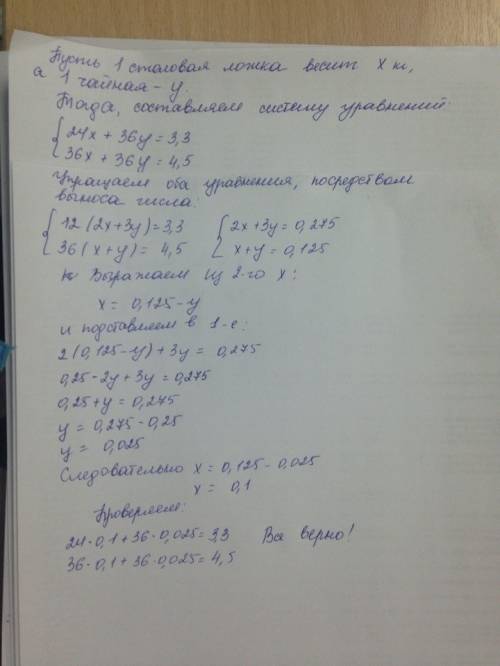 Пусть 1 столовая ложка весит x кг,
а 1 чайная - y.
Тогда, составляем систему уравнений:
24x + 36y = 3,3
36x + 36y = 4,5
Упращаем оба уравнения, посредством
выноса числа:
12(2x+3y)=3,3 2x+3y=0,275
36(x+y)= 4,5 x+y=0,125
Выражаем из 2-го x:
x = 0,125-y
и подставляем в 1-е:
2(0,125-y)+3y = 0,275
0,25-2y+3y=0,275
0,25+y=0,275
y = 0,275-0,25
y = 0,025
Следовательно x = 0,125-0,025
x = 0,1
Проверяем:
24·0,1+36·0,025=3,3 Все верно!
36·0,1+36·0,025=4,5